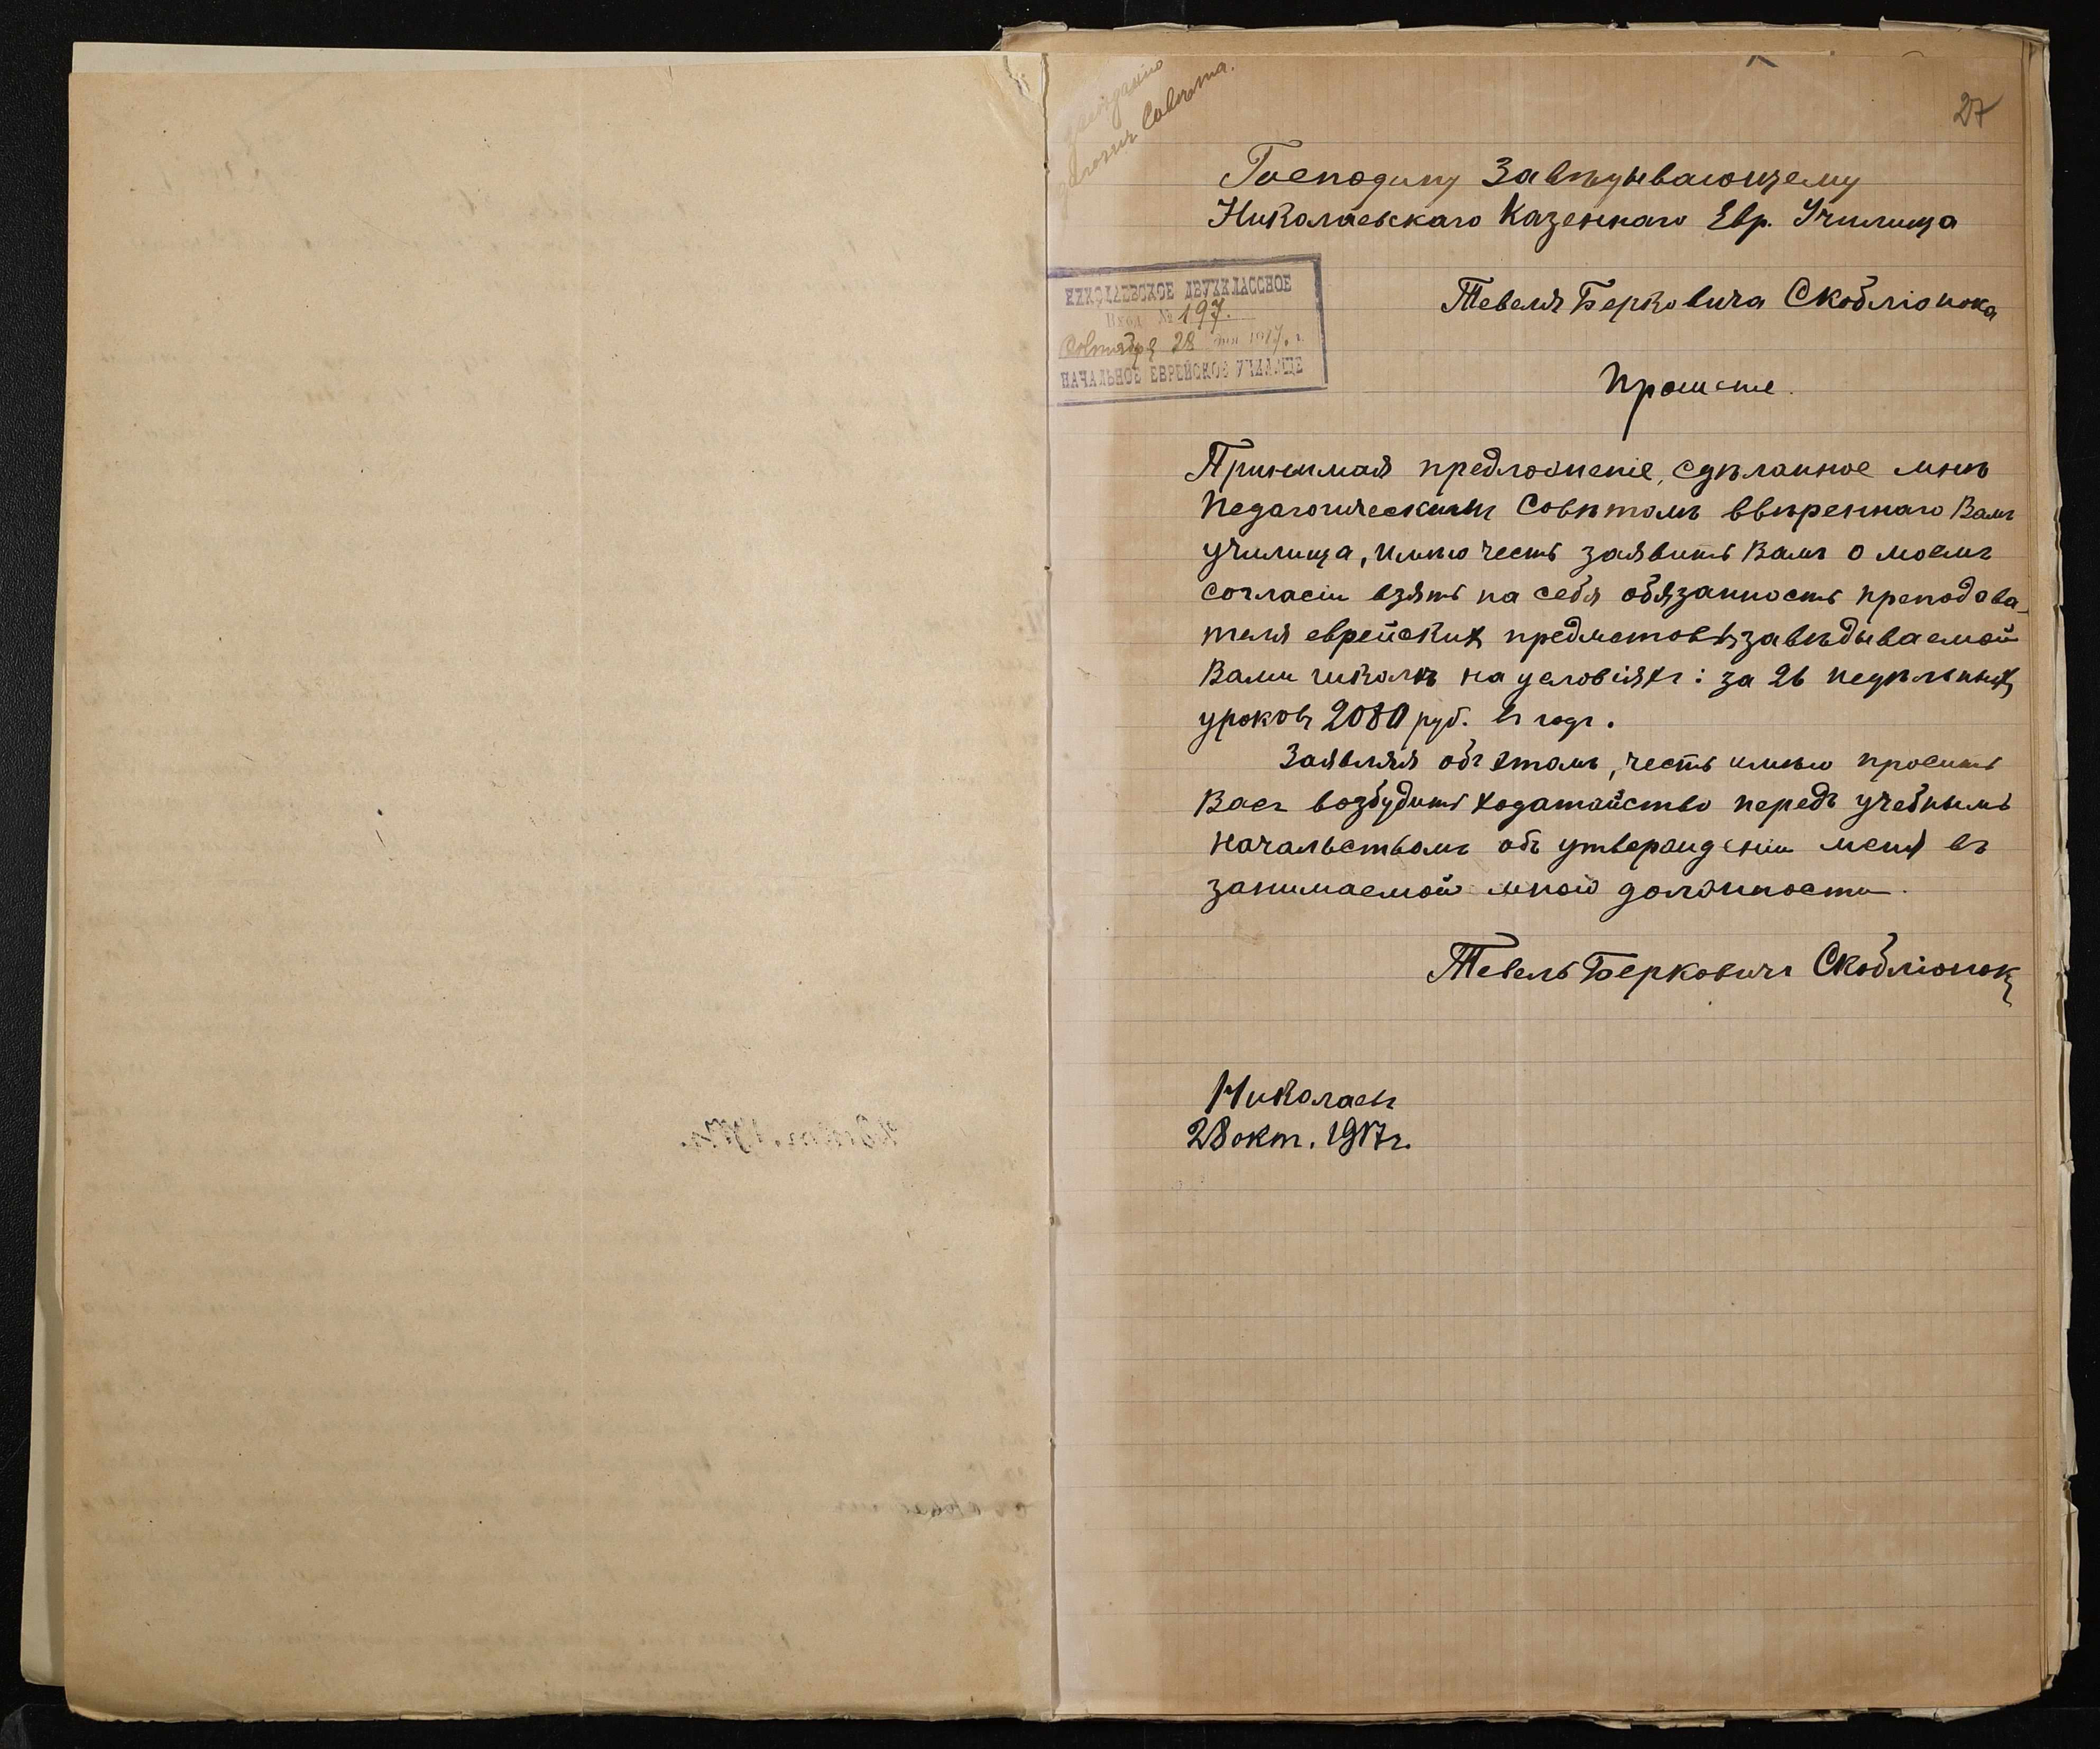 Совета.
27
Господину Завѣдывающему
Николаевскаго Казеннаго Евр. Училища
Тевеля Берковича Скобліонока
НИКОЛАЕВСКОЕ ДВУХКЛАССНОЕ
Вход. № 197.
28 дня 1917 г.
НАЧАЛЬНОЕ ЕВРЕЙСКОЕ УЧИЛИЩЕ
Прошеніе.
Принимая предложеніе, сдѣланное мнѣ
Педагогическимъ Совѣтомъ ввѣреннаго Вамъ
училища, имѣю честь заявить Вамъ о моемъ
согласіи взять на себя обязанность преподава-
теля еврейскихъ предметовъ въ завѣдываемой
Вами школѣ на условіяхъ: за 26 недѣльныхъ
уроковъ 2080 руб. въ годъ.
Заявляя объ этомъ, честь имѣю просить
Васъ возбудить ходатайство передъ учебнымъ
начальствомъ объ утвержденіи меня въ
занимаемой мной должности.
Тевель Берковичъ Скобліонокъ
Николаевъ
28 окт. 1917 г.